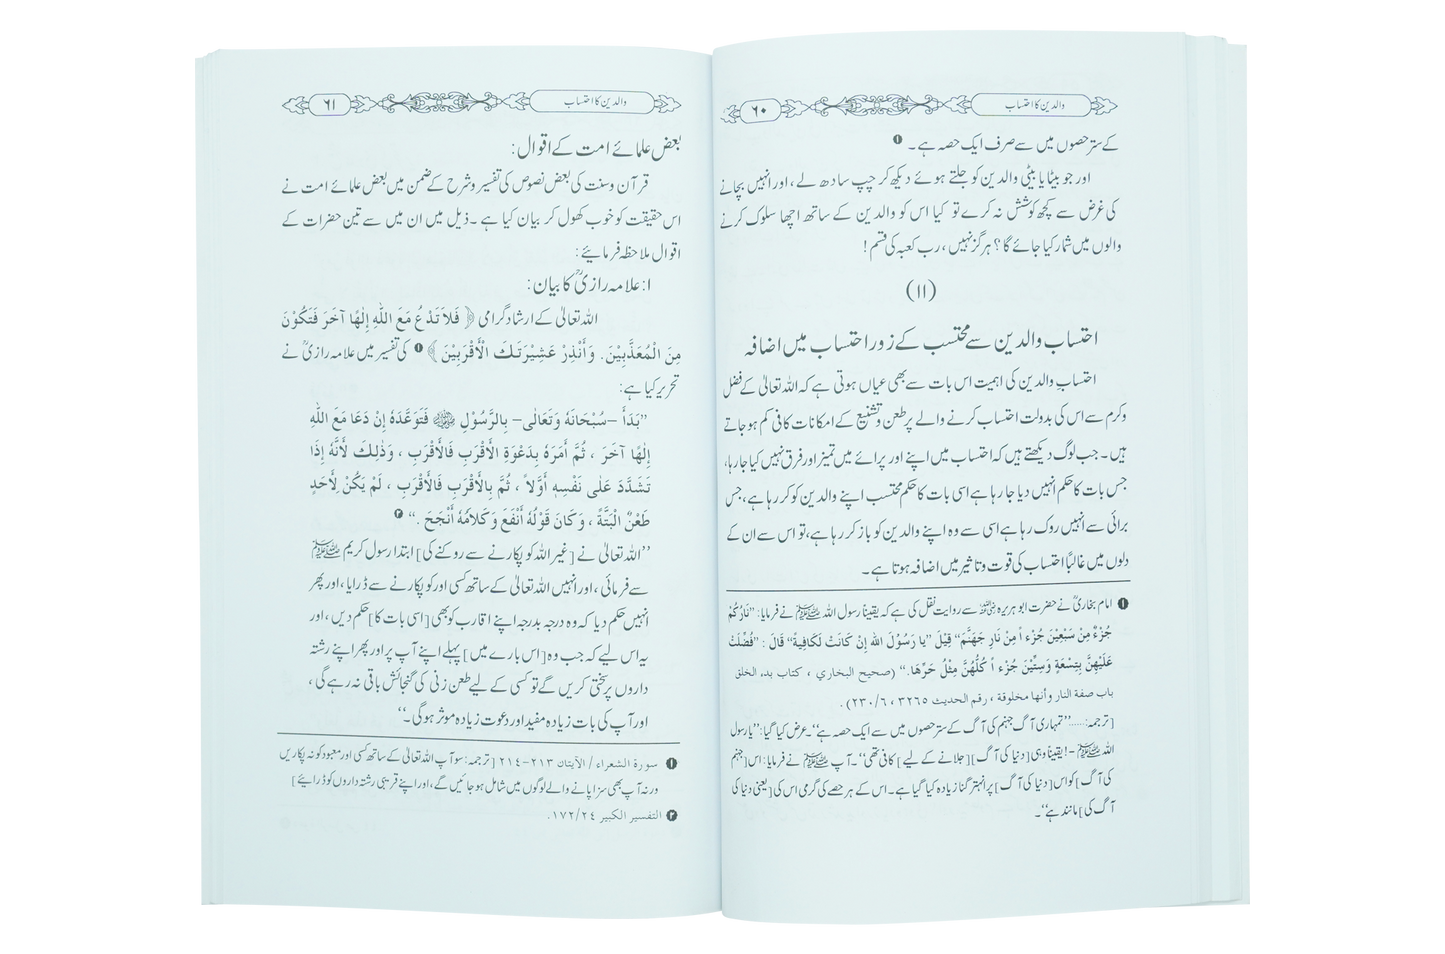 والدین کا احتساب
۶۰
کے ستر حصوں میں سے صرف ایک حصہ ہے۔ ❶
اور جو بیٹا یا بیٹی والدین کو جلتے ہوئے دیکھ کر چپ سادھ لے، اور انہیں بچانے
کی غرض سے کچھ کوشش نہ کرے تو کیا اس کو والدین کے ساتھ اچھا سلوک کرنے
والوں میں شمار کیا جائے گا؟ ہرگز نہیں، رب کعبہ کی قسم!
(۱۱)
احتساب والدین سے محتسب کے زور احتساب میں اضافہ
احتسابِ والدین کی اہمیت اس بات سے بھی عیاں ہوتی ہے کہ اللہ تعالیٰ کے فضل
وکرم سے اس کی بدولت احتساب کرنے والے پر طعن و تشنیع کے امکانات کافی کم ہو جاتے
ہیں۔ جب لوگ دیکھتے ہیں کہ احتساب میں اپنے اور پرائے میں تمیز اور فرق نہیں کیا جا رہا،
جس بات کا حکم انہیں دیا جا رہا ہے اسی بات کا حکم محتسب اپنے والدین کو کر رہا ہے، جس
برائی سے انہیں روک رہا ہے اسی سے وہ اپنے والدین کو باز کر رہا ہے، تو اس سے ان کے
دلوں میں غالباً احتساب کی قوت و تاثیر میں اضافہ ہوتا ہے۔
❶ امام بخاریؒ نے حضرت ابو ہریرہ رضی اللہ عنہ سے روایت نقل کی ہے کہ یقیناً رسول اللہ ﷺ نے فرمایا: ”نَارُكُمْ
جُزْءٌ مِنْ سَبْعِيْنَ جُزْءاً مِنْ نَارِ جَهَنَّمَ“ قِيْلَ ”يا رَسُوْلَ الله إِنْ كَانَتْ لَكَافِيةً“ قَالَ: ”فُضِّلَتْ
عَلَيْهِنَّ بِتِسْعَةٍ وَسِتِّيْنَ جُزْءاً كُلُّهُنَّ مِثْلُ حَرِّهَا.“ (صحيح البخاري ، كتاب بدء الخلق
باب صفة النار وأنها مخلوقة ، رقم الحديث ۳۲٦٥ ، ٦/۲۳۰).
[ترجمہ:......”تمہاری آگ جہنم کی آگ کے ستر حصوں میں سے ایک حصہ ہے“۔ عرض کیا گیا: ”یا رسول
اللہ ﷺ –! یقیناً وہی [دنیا کی آگ] [جلانے کے لیے] کافی تھی“۔ آپ ﷺ نے فرمایا: اس [جہنم
کی آگ] کو اس [دنیا کی آگ] پر انہتر گنا زیادہ کیا گیا ہے۔ اس کے ہر حصے کی گرمی اس کی [یعنی دنیا کی
آگ کی] مانند ہے“۔
والدین کا احتساب
۶۱
بعض علمائے امت کے اقوال:
قرآن وسنت کی بعض نصوص کی تفسیر و شرح کے ضمن میں بعض علمائے امت نے
اس حقیقت کو خوب کھول کر بیان کیا ہے۔ ذیل میں ان میں سے تین حضرات کے
اقوال ملاحظہ فرمایئے:
۱: علامہ رازیؒ کا بیان:
اللہ تعالیٰ کے ارشاد گرامی ﴿ فَلاَ تَدْعُ مَعَ اللّٰهِ إِلٰهًا آخَرَ فَتَكُوْنَ
مِنَ الْمُعَذَّبِيْنَ. وَأَنْذِرْ عَشِيْرَتَكَ الْأَقْرَبِيْنَ ﴾ ❶ کی تفسیر میں علامہ رازیؒ نے
تحریر کیا ہے:
”بَدَأَ –سُبْحَانَهٗ وَتَعَالٰى– بِالرَّسُوْلِ ﷺ فَتَوَعَّدَهٗ إِنْ دَعَا مَعَ اللّٰهِ
إِلٰهًا آخَرَ ، ثُمَّ أَمَرَهٗ بِدَعْوَةِ الْأَقْرَبِ فَالْأَقْرَبِ ، وَذٰلِكَ لأَنَّهٗ إِذَا
تَشَدَّدَ عَلٰى نَفْسِهٖ أَوَّلاً ، ثُمَّ بِالْأَقْرَبِ فَالْأَقْرَبِ ، لَمْ يَكُنْ لِأَحَدٍ
طَعْنٌ الْبَتَّةً ، وَكَانَ قَوْلُهٗ أَنْفَعَ وَكَلَامُهٗ أَنْجَحَ .“ ❷
”اللہ تعالیٰ نے [غیر اللہ کو پکارنے سے روکنے کی] ابتدا رسول کریم ﷺ
سے فرمائی، اور انہیں اللہ تعالیٰ کے ساتھ کسی اور کو پکارنے سے ڈرایا، اور پھر
انہیں حکم دیا کہ وہ درجہ بدرجہ اپنے اقارب کو بھی [اسی بات کا] حکم دیں، اور
یہ اس لیے کہ جب وہ [اس بارے میں] پہلے اپنے آپ پر اور پھر اپنے رشتہ
داروں پر سختی کریں گے تو کسی کے لیے طعن زنی کی گنجائش باقی نہ رہے گی،
اور آپ کی بات زیادہ مفید اور دعوت زیادہ موثر ہوگی۔“
❶ سورة الشعراء / الآيتان ۲۱۳–۲۱٤ [ترجمہ: سو آپ اللہ تعالیٰ کے ساتھ کسی اور معبود کو نہ پکاریں
ورنہ آپ بھی سزا پانے والے لوگوں میں شامل ہو جائیں گے، اور اپنے قریبی رشتہ داروں کو ڈرایئے]
❷ التفسير الكبير ۱۷۲/۲٤.